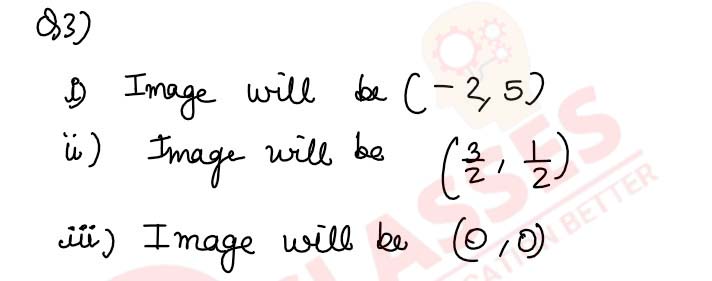 Q3)
i) Image will be (-2, 5)
ii) Image will be (3/2, 1/2)
iii) Image will be (0, 0)
CLASSES
CATION BETTER